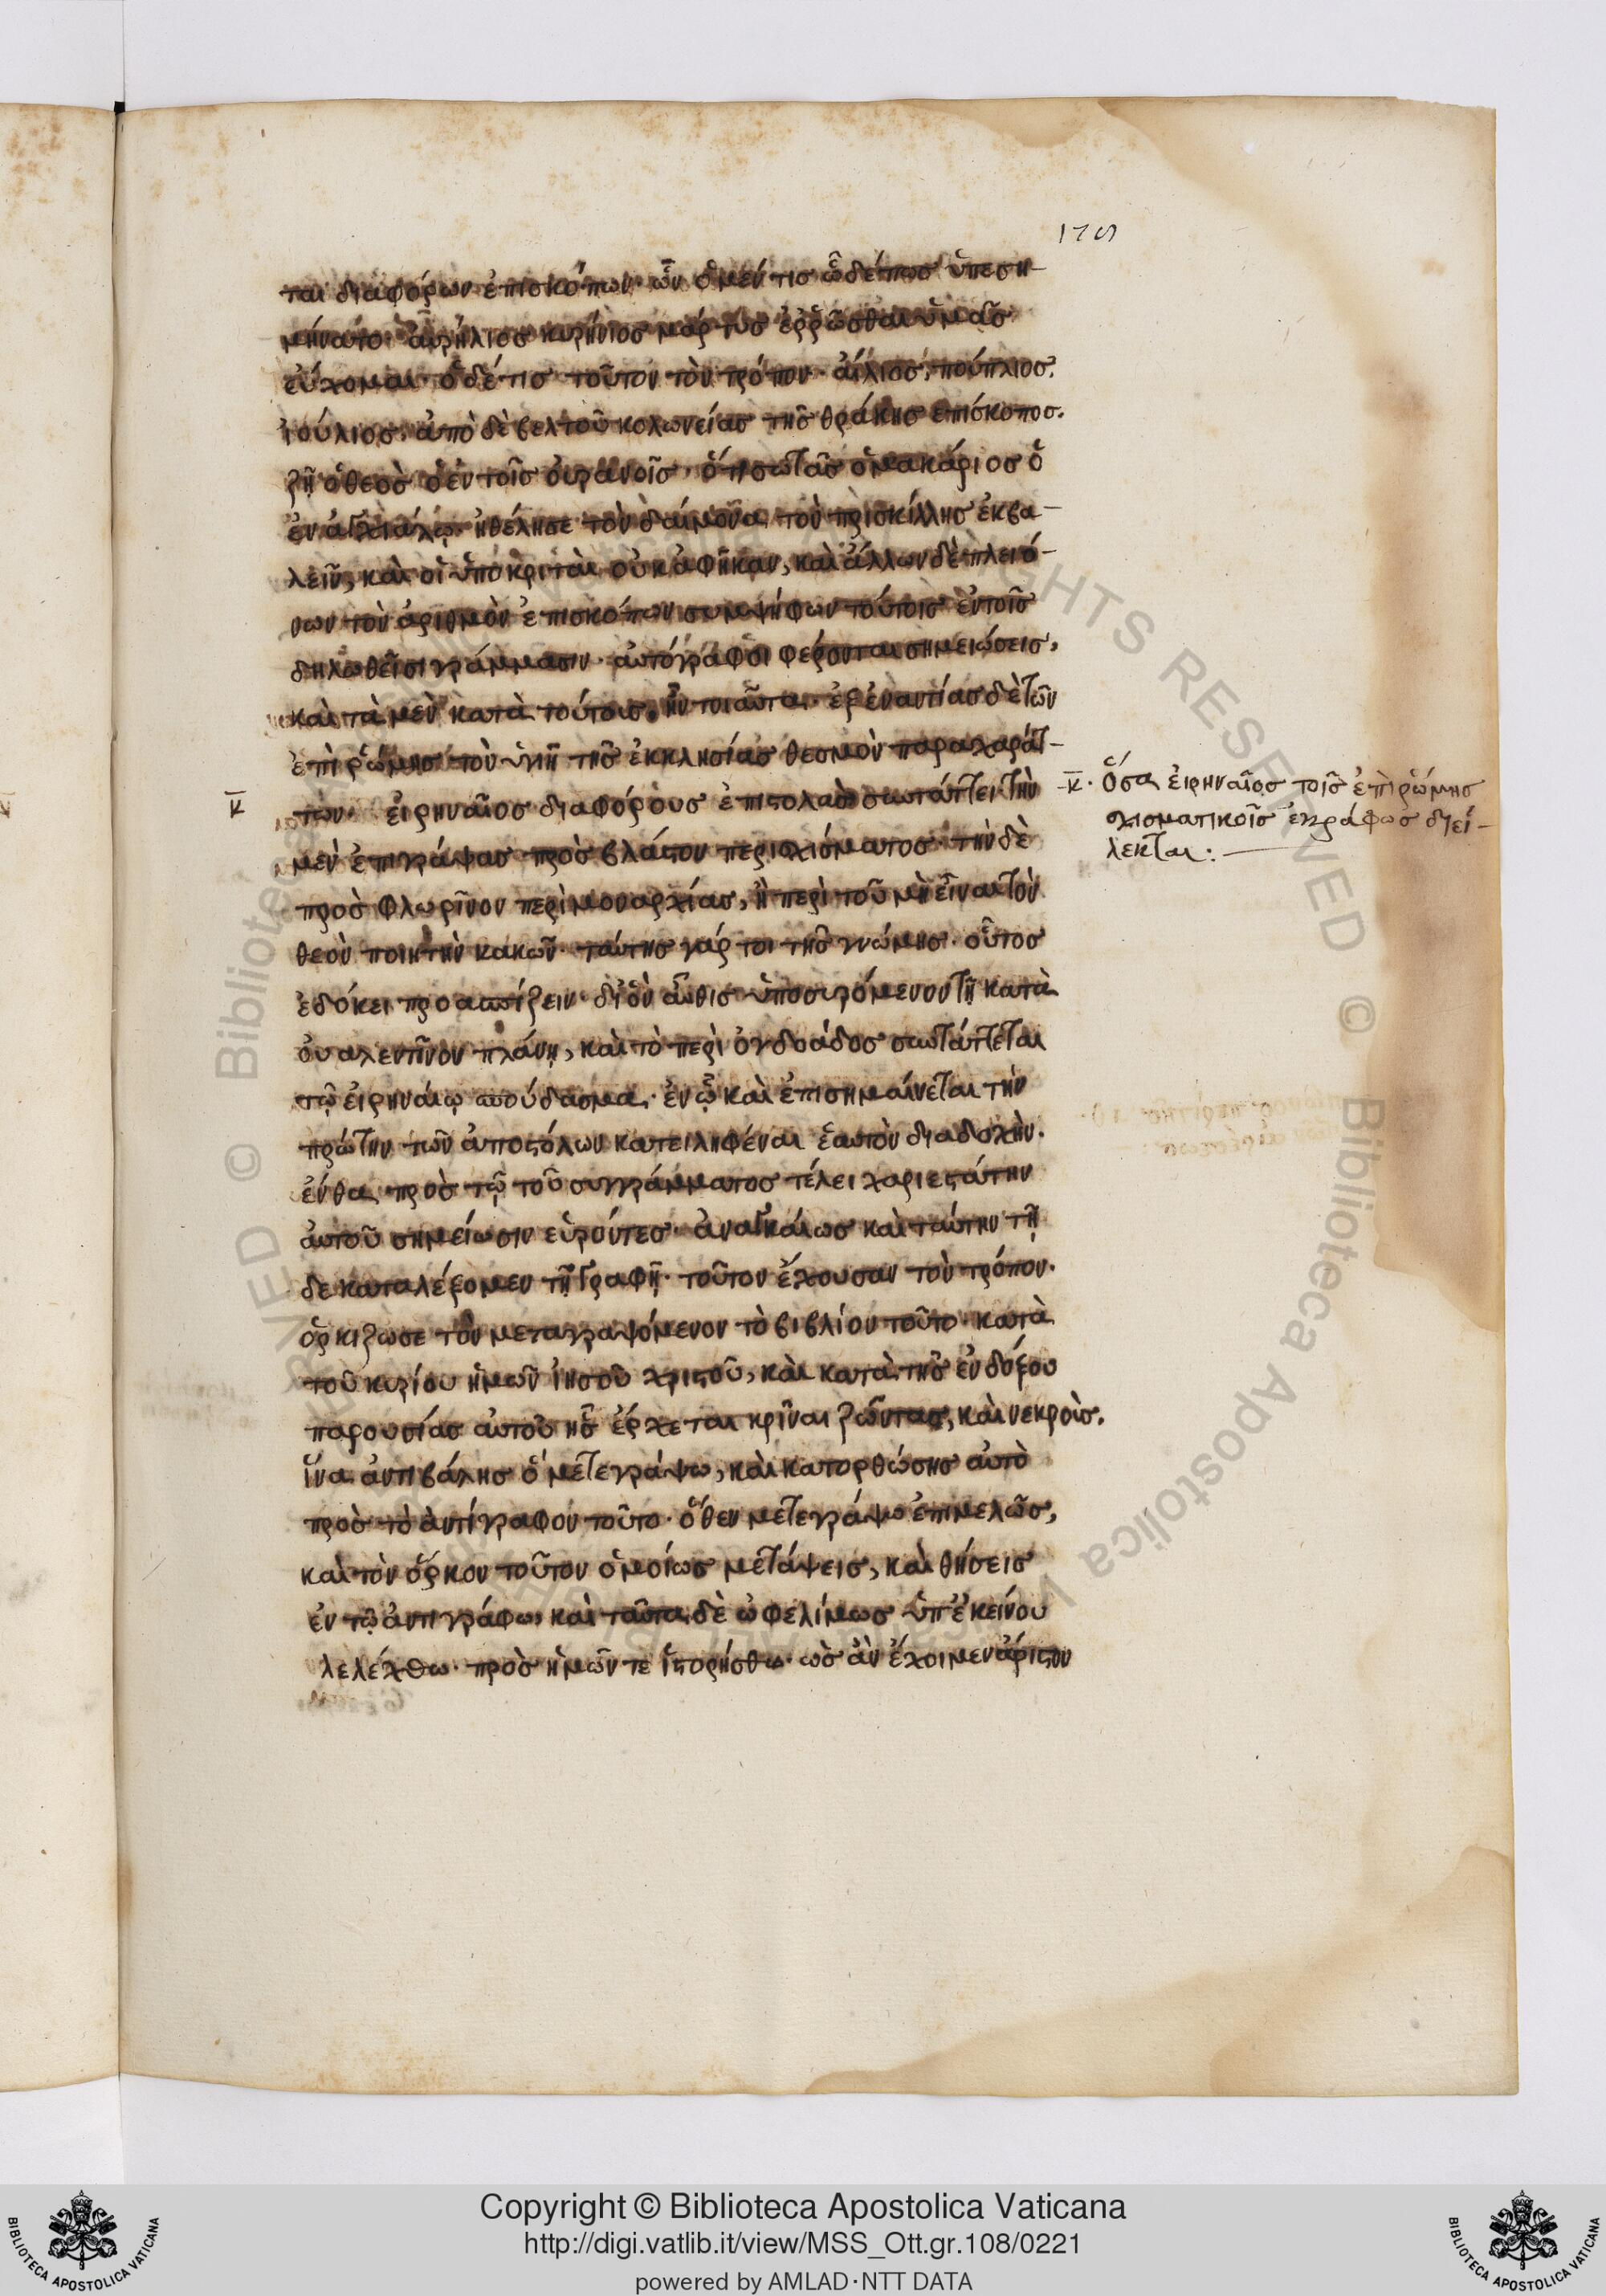 175
ται διαφόρων ἐπισκόπων· ὧν ὁ μέν τις ὧδέ πως ὑπεση-
μήνατο· αὐρήλιος κυρήνιος μάρτυς ἐρρῶσθαι ὑμᾶς
εὔχομαι· ὁ δέ τις τοῦτον τὸν τρόπον· αἴλιος, πούπλιος,
ἰούλιος, ἀπὸ δὲ βελτοῦ κολωνείας τῆς θράκης ἐπίσκοπος.
ζῆ ὁ θεὸς ὁ ἐν τοῖς οὐρανοῖς, ὅτι σωτᾶς ὁ μακάριος ὁ
ἐν ἀγχιάλῳ ἠθέλησε τὸν δαίμονα τὸν πρισκίλλης ἐκβα-
λεῖν, καὶ οἱ ὑποκριταὶ οὐκ ἀφῆκαν, καὶ ἄλλων δὲ πλειό-
νων τὸν ἀριθμὸν ἐπισκόπων συμψήφων τούτοις ἐν τοῖς
δηλωθεῖσι γράμμασιν· αὐτόγραφοι φέρονται σημειώσεις,
καὶ τὰ μὲν κατὰ τούτους ἦν τοιαῦτα· ἐξ ἐναντίας δὲ τῶν
ἐπὶ ῥώμης τὸν ὑγιῆ τῆς ἐκκλησίας θεσμὸν παραχαρατ-
κ
των· εἰρηναῖος διαφόρους ἐπιστολὰς συντάττει· τὴν
μὲν ἐπιγράψας πρὸς βλάστον περὶ σχίσματος· τὴν δὲ
πρὸς φλωρῖνον περὶ μοναρχίας, ἢ περὶ τοῦ μὴ εἶναι τὸν
θεὸν ποιητὴν κακῶν· ταύτης γάρ τοι τῆς γνώμης· οὗτος
ἐδόκει προασπίζειν· δι' ὃν αὖθις ὑποσυρόμενον τῆ κατὰ
οὐαλεντῖνον πλάνῃ, καὶ τὸ περὶ ὀγδοάδος συντάττεται
τῷ εἰρηναίῳ σπούδασμα· ἐν ᾧ καὶ ἐπισημαίνεται τὴν
πρώτην τῶν ἀποστόλων κατειληφέναι ἑαυτὸν διαδοχήν.
ἔνθα πρὸς τῷ τοῦ συγγράμματος τέλει χαριεστάτην
αὐτοῦ σημείωσιν εὑρόντες· ἀναγκαίως καὶ ταύτην τῆ
δε καταλέξομεν τῆ γραφῆ· τοῦτον ἔχουσαν τὸν τρόπον.
ὁρκίζω σε τὸν μεταγραψόμενον τὸ βιβλίον τοῦτο· κατὰ
τοῦ κυρίου ἡμῶν ἰησοῦ χριστοῦ, καὶ κατὰ τῆς ἐνδόξου
παρουσίας αὐτοῦ ἧς ἔρχεται κρῖναι ζῶντας, καὶ νεκρούς.
ἵνα ἀντιβάλης ὃ μετεγράψω, καὶ κατορθώσης αὐτὸ
πρὸς τὸ ἀντίγραφον τοῦτο· ὅθεν μετεγράψω ἐπιμελῶς,
καὶ τὸν ὅρκον τοῦτον ὁμοίως μετάψεις, καὶ θήσεις
ἐν τῷ ἀντιγράφω· καὶ ταῦτα δὲ ὠφελίμως ὑπ' ἐκείνου
λελέχθω· πρὸς ἡμῶν τε ἱστορήσθω· ὡς ἂν ἔχοιμεν ἄριστον
κ· ὅσα εἰρηναῖος τοῖς ἐπὶ ῥώμης
σχισματικοῖς ἐγγράφως διεί-
λεκται:
Copyright © Biblioteca Apostolica Vaticana
http://digi.vatlib.it/view/MSS_Ott.gr.108/0221
powered by AMLAD·NTT DATA
BIBLIOTECA APOSTOLICA VATICANA
BIBLIOTECA APOSTOLICA VATICANA